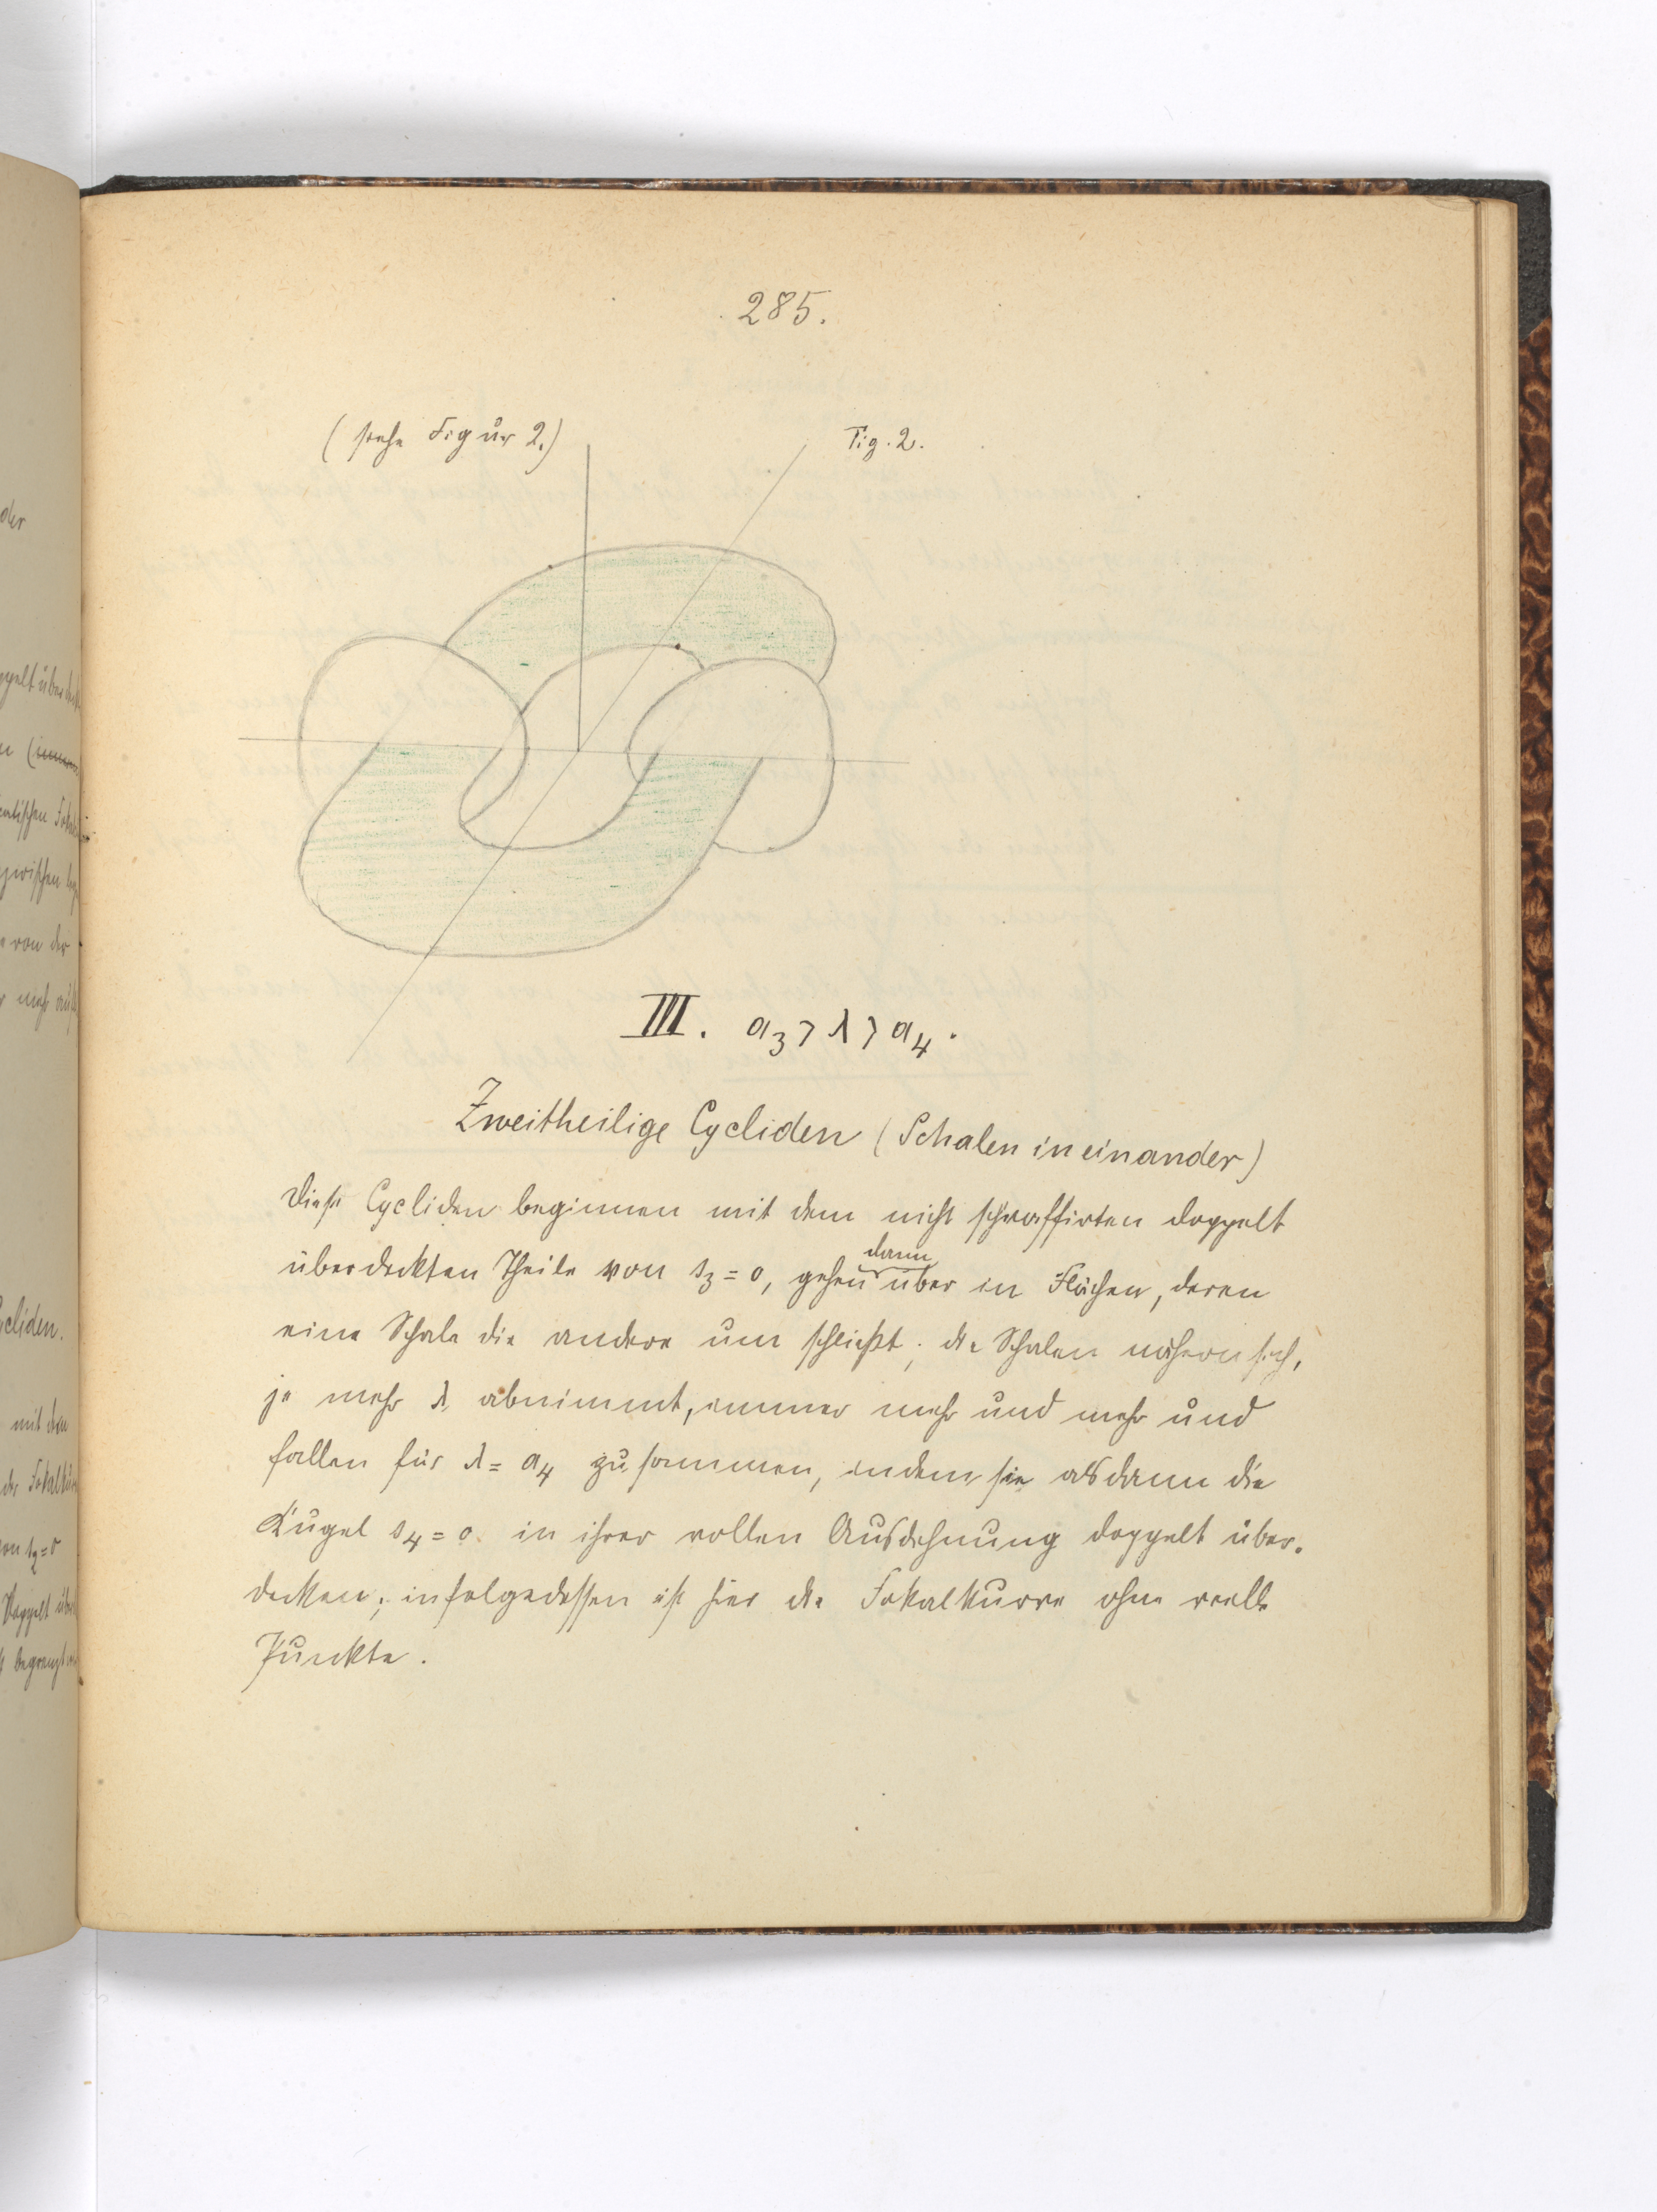 285.
(siehe Figur 2.)
Fig. 2.
III. a₃ > λ > a₄.
Zweitheilige Cycliden (Schalen ineinander)
Diese Cycliden beginnen mit dem nicht schraffirten doppelt
dann
überdeckten Theile von s₃ = 0, gehen über in Flächen, deren
eine Schale die andere umschließt; die Schalen nähern sich,
je mehr λ abnimmt, immer mehr und mehr und
fallen für λ = a₄ zusammen, indem sie alsdann die
Kugel s₄ = 0 in ihrer vollen Ausdehnung doppelt über-
decken; infolgedessen ist hier die Fokalkurve ohne reelle
Punkte.
der
mit dem
von der
von s₂=0